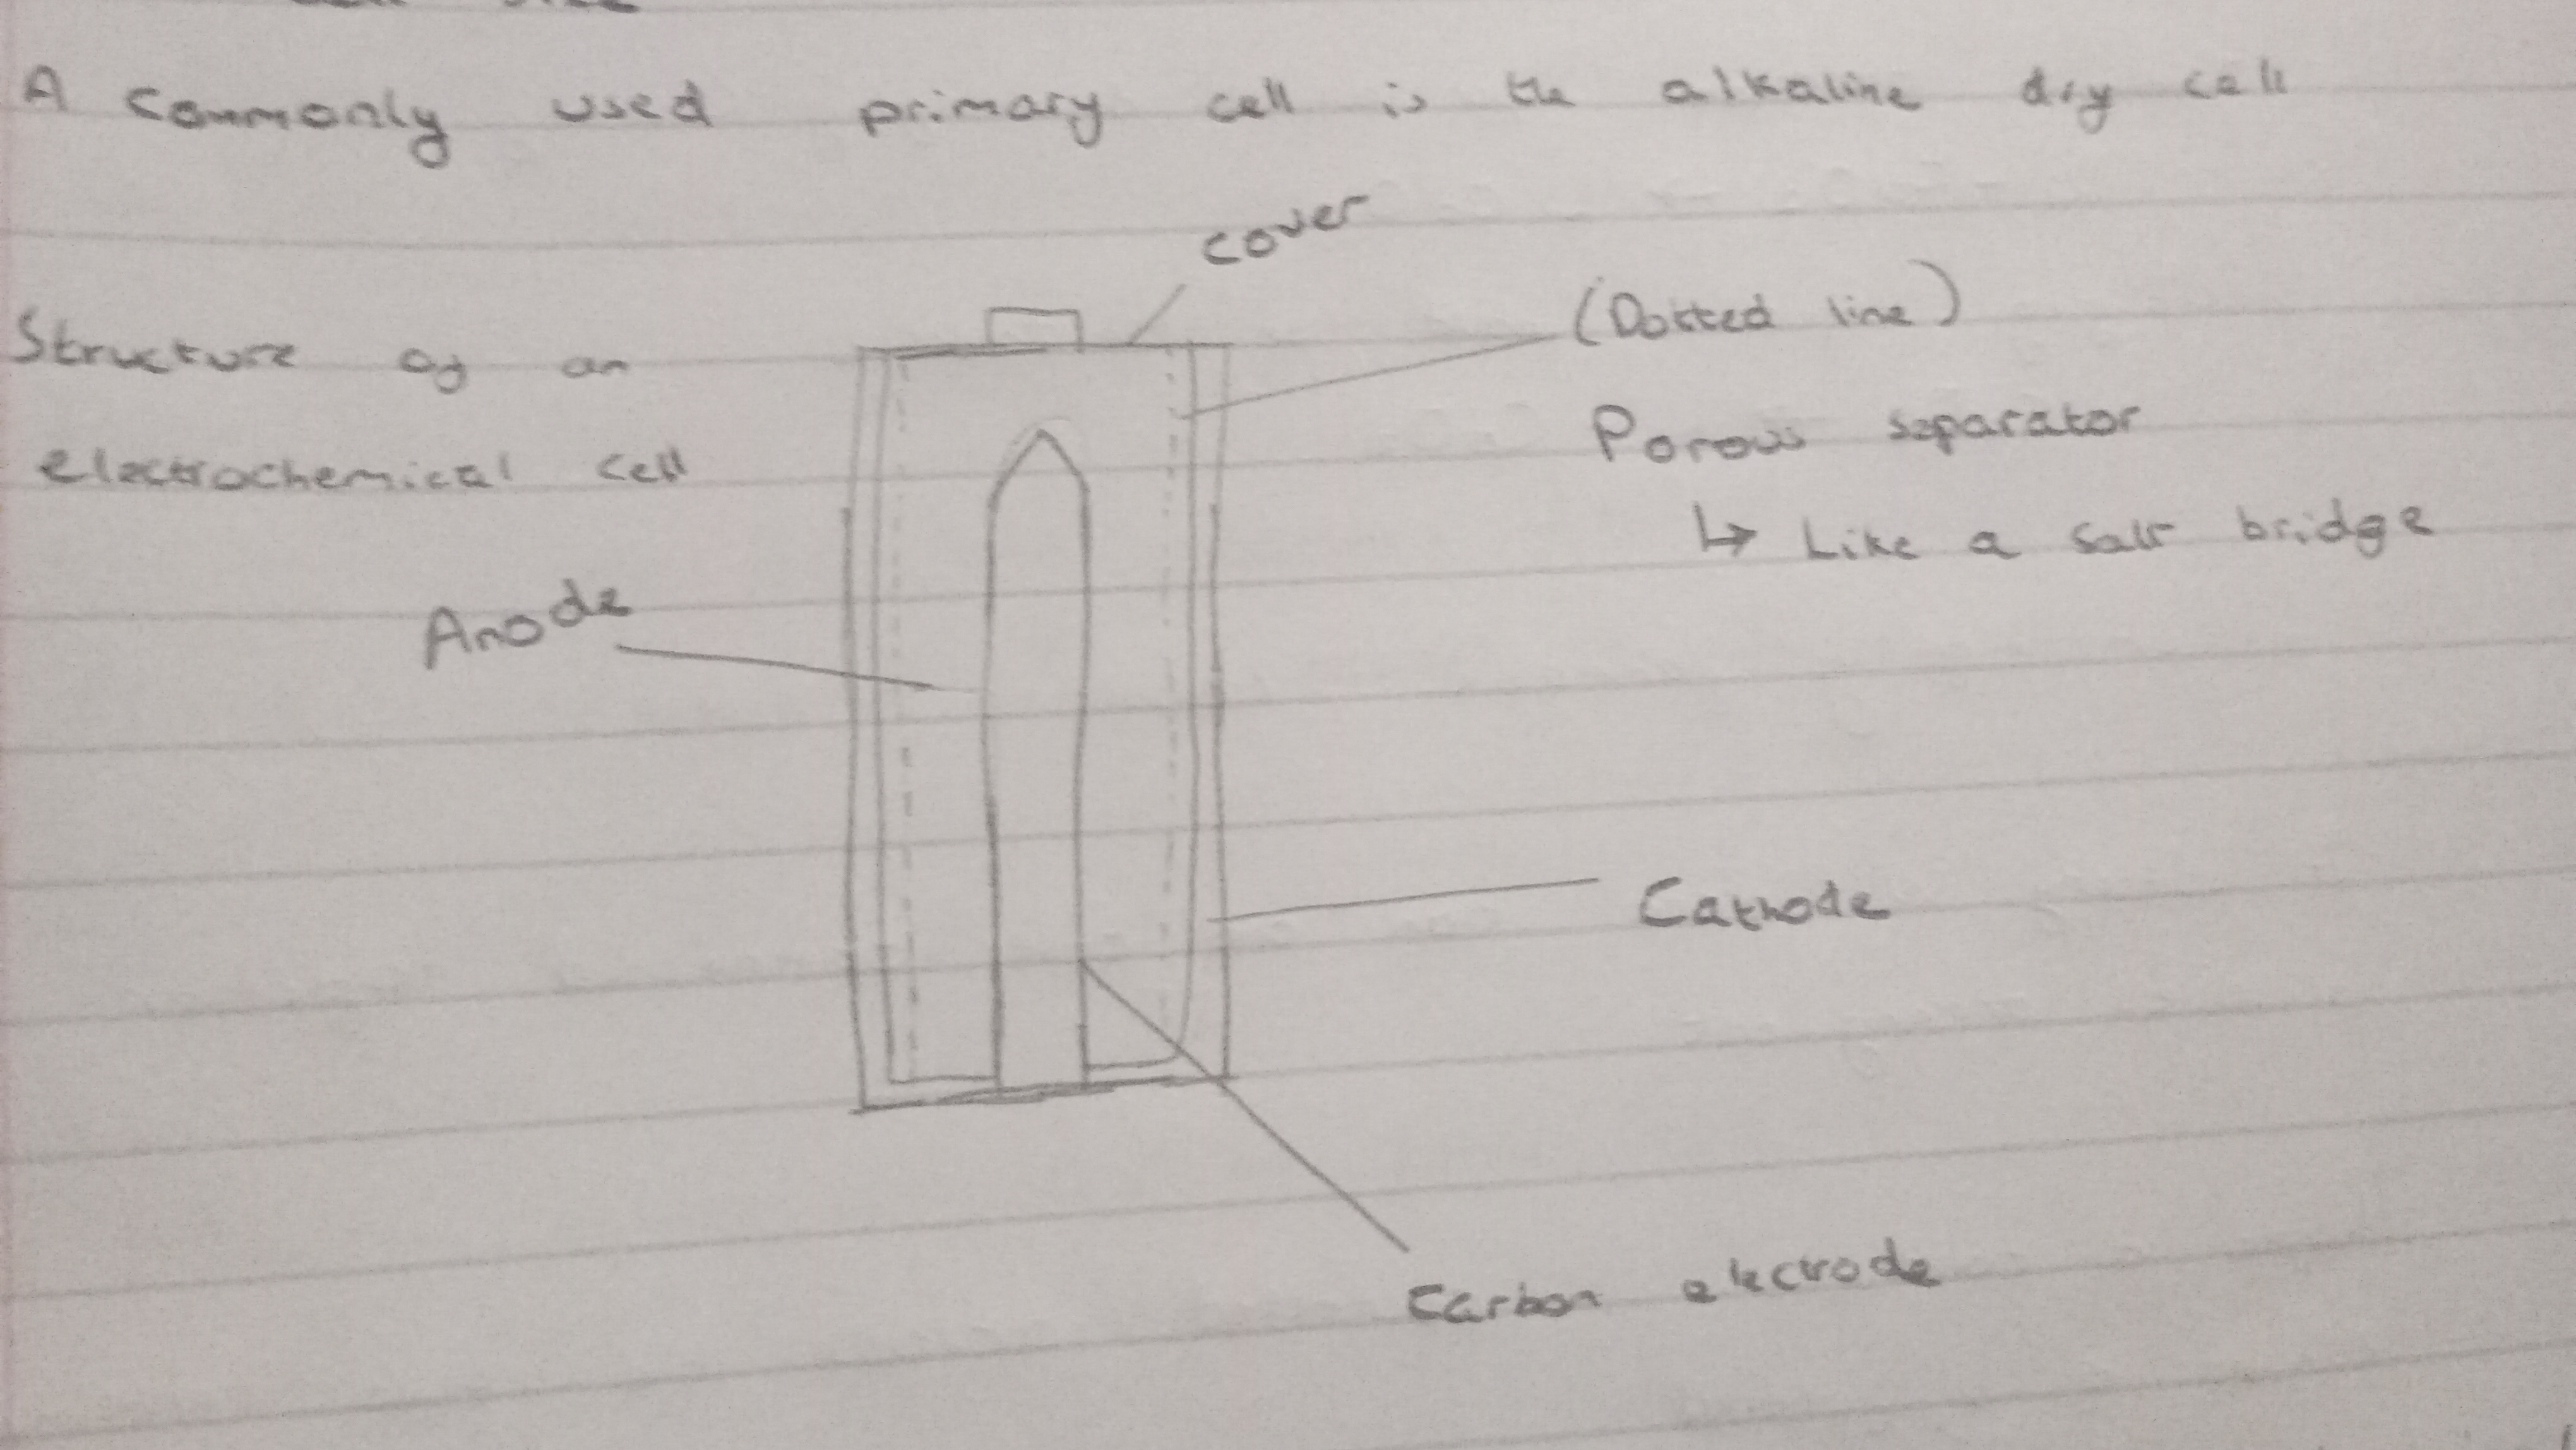 A commonly used primary cell is the alkaline dry cell
cover
(Dotted line)
Structure of an
electrochemical cell
Porous separator
↳ Like a salt bridge
Anode
Cathode
Carbon electrode